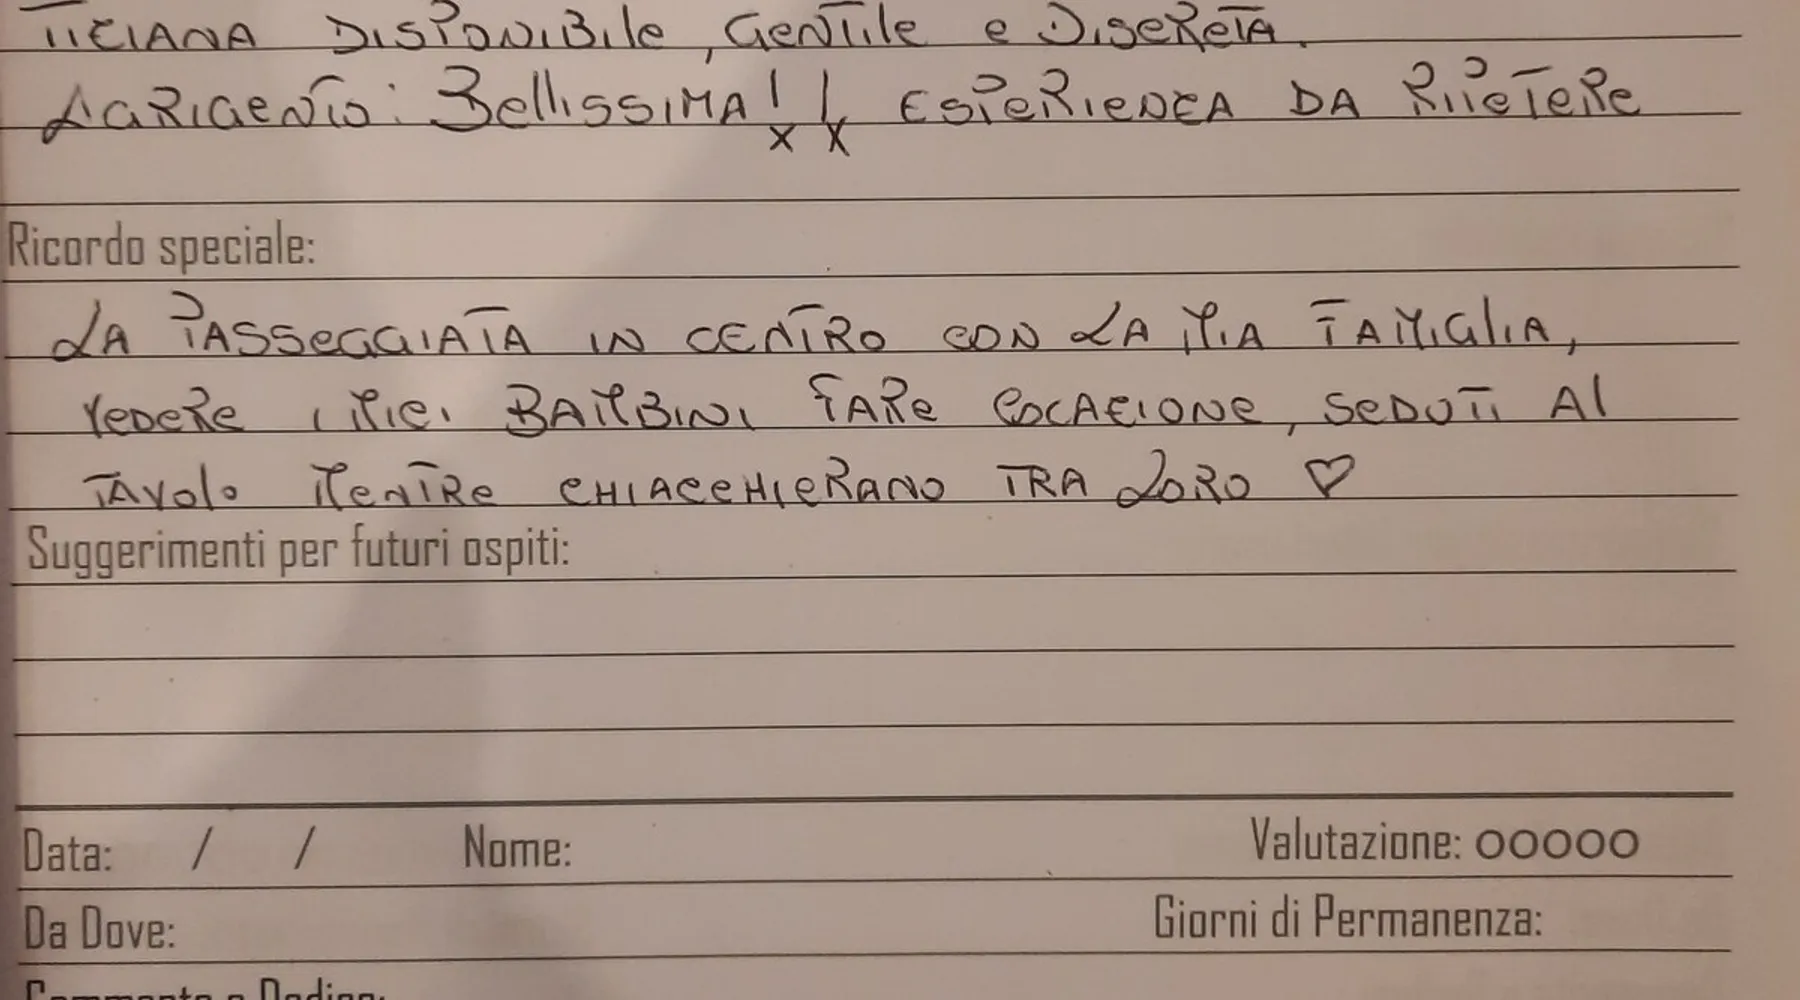 TIZIANA DISPONIBILE, GENTILE e DISCRETA.
L'AGRIGENTO: BELLISSIMA!! ESPERIENZA DA RIPETERE
Ricordo speciale:
LA PASSEGGIATA IN CENTRO CON LA MIA FAMIGLIA,
VEDERE I MIEI BAMBINI FARE COLAZIONE, SEDUTI AL
TAVOLO MENTRE CHIACCHIERANO TRA LORO ♡
Suggerimenti per futuri ospiti:
Data: / / Nome: Valutazione: OOOOO
Da Dove: Giorni di Permanenza: